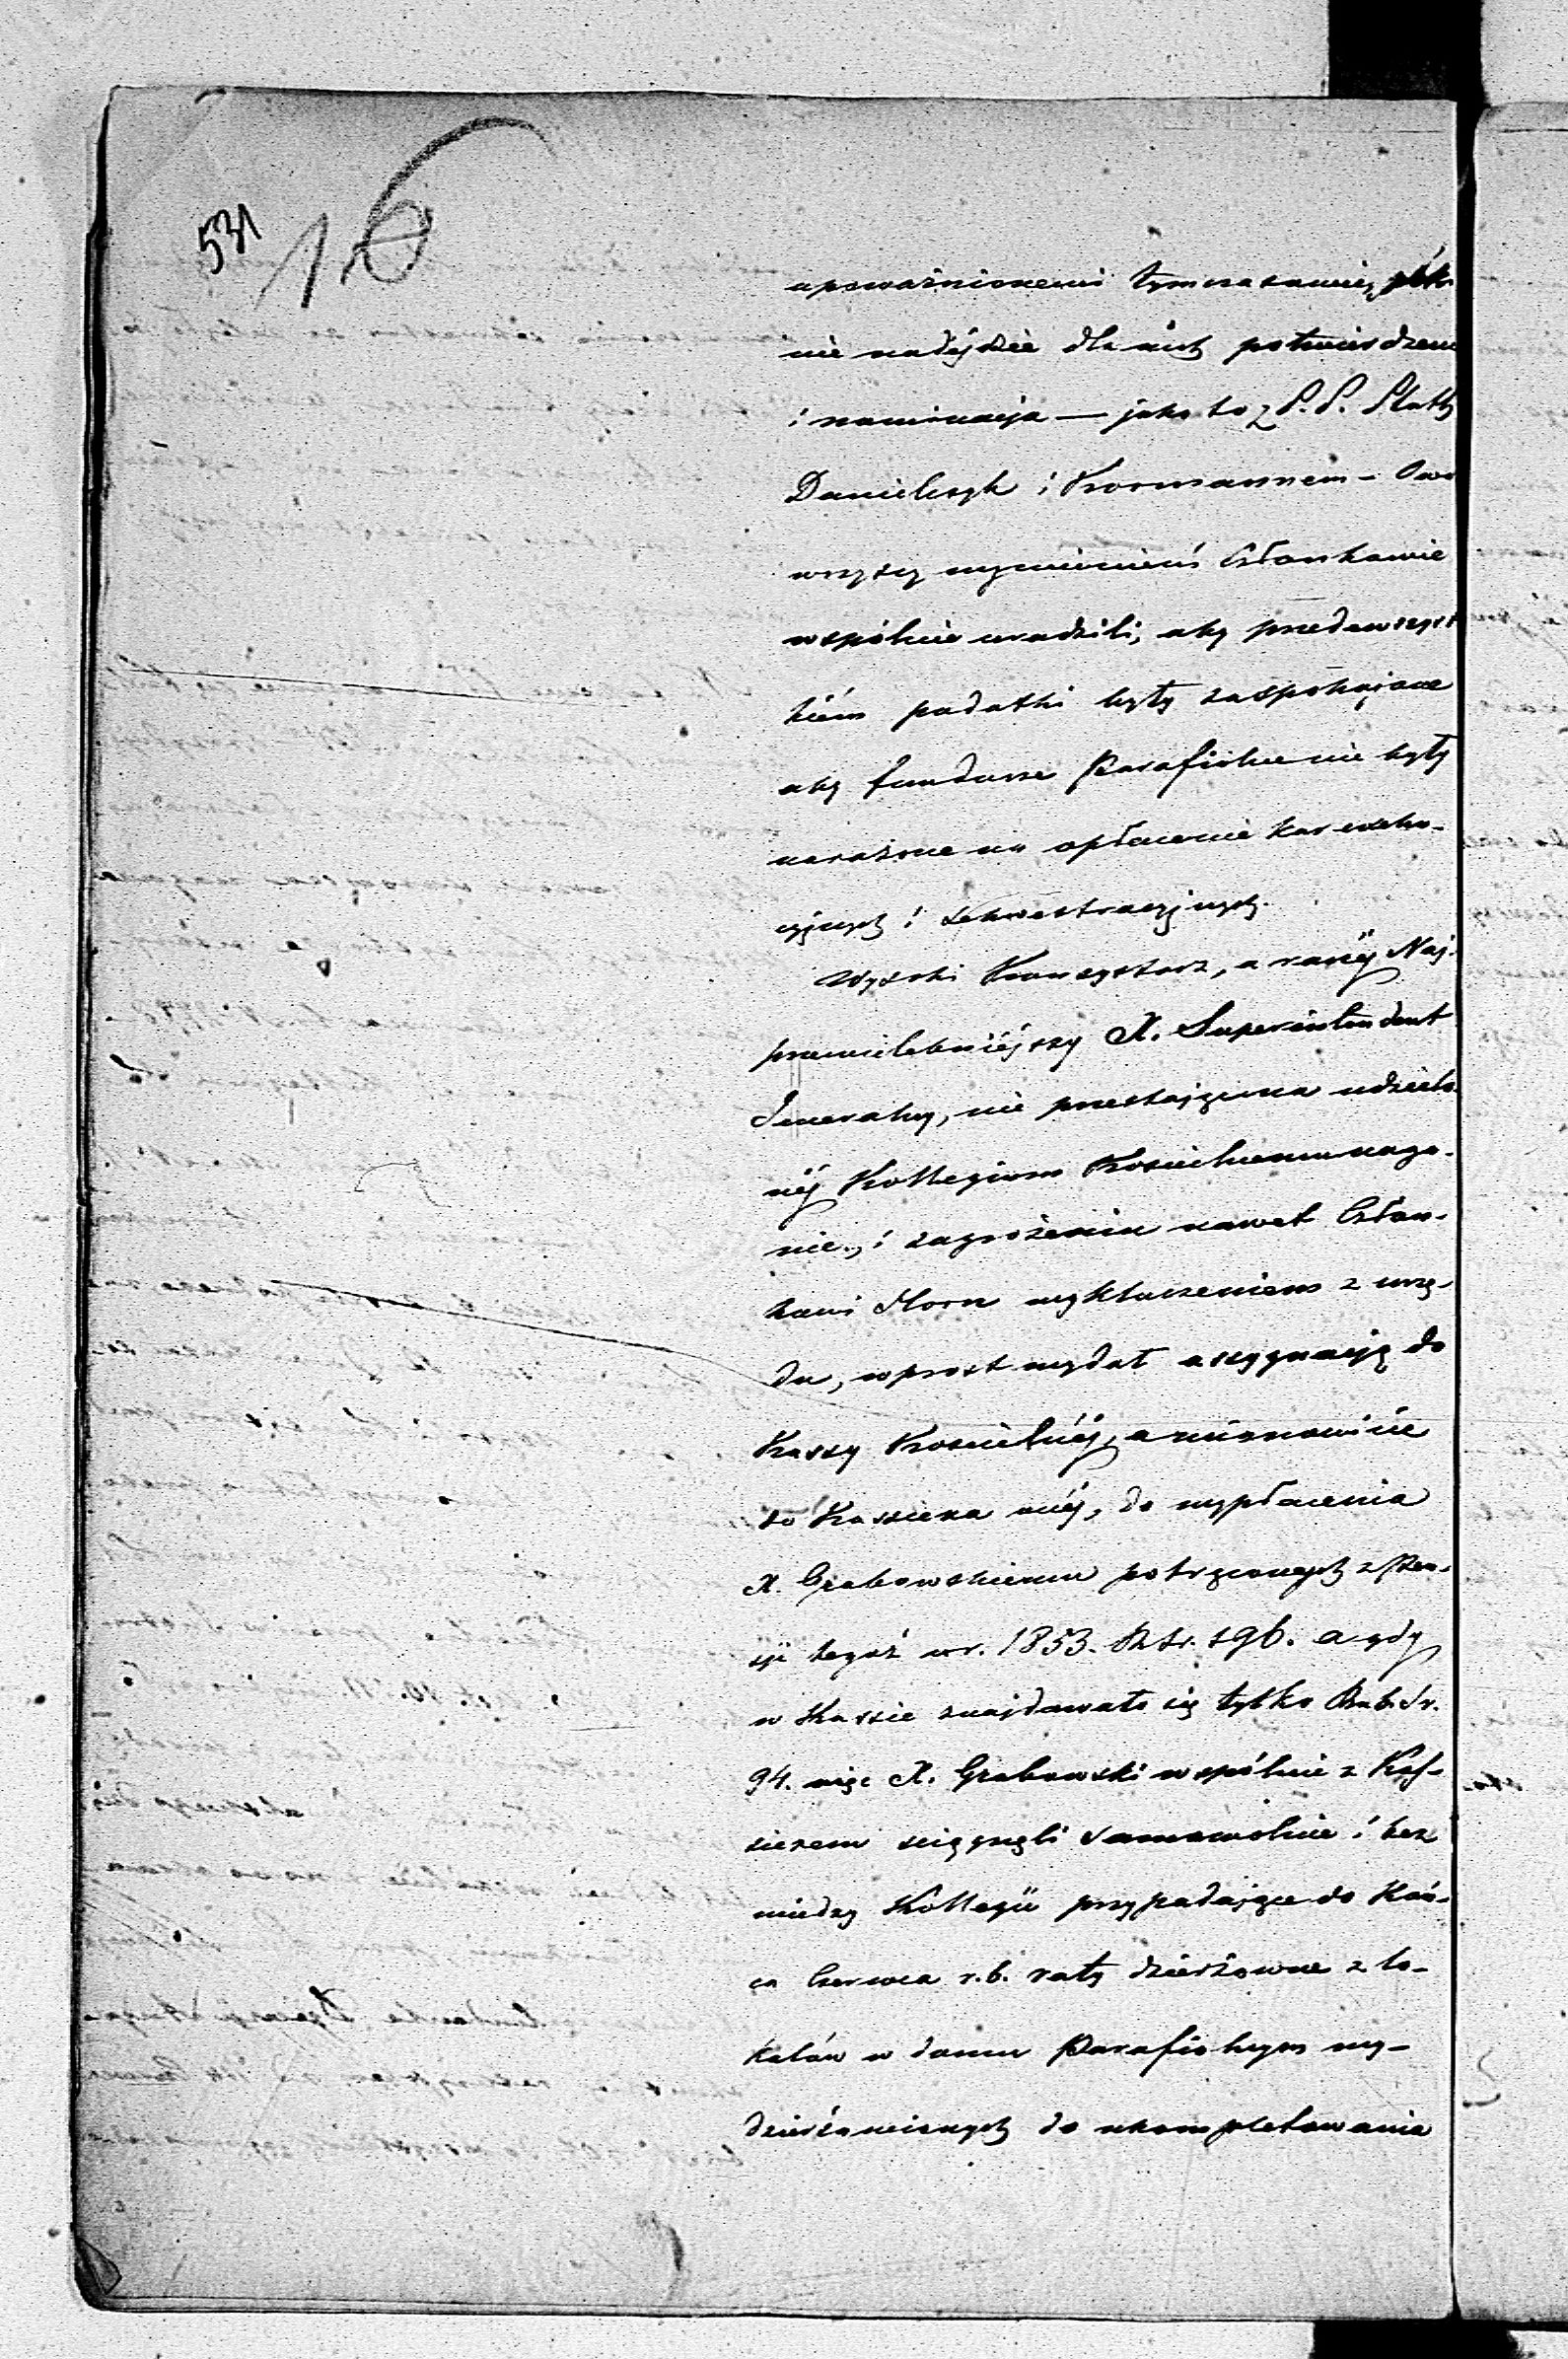 531
16
upoważnionemi tymczasowie,
nie nadéjdzie dla nich potwierdzeni
i nominacja — jako to z P. P. Slatty
Danielczyk i Koormannem –
wszyscy wymienieni Członkowie
wspólnie uradzili, aby przedewszyst
kiém podatki były zaspokajane
aby fundusze Parafialne nie były
narażone na opłacenie kar exeku-
cyjnych i Sekwestracyjnych.
Wysoki Konsystorz, a raczéj Naj-
przewielebniéjszy X. Superintendent
Jeneralny, nie przestając na udzielo-
néj Kollegium Kościelnemu naga-
nie, i zagrożeniu nawet Człon-
kowi Horn wykluczeniem z urzę-
du, wprost wydał assygnacją do
Kassy Kościelnéj, a mianowicie
to Kassiera onéj, do wypłacenia
X. Grabowskiemu potrąconych z Pen-
sji tegoż w r. 1853. Rsr. 196. a gdy
w Kassie znajdowało się tylko Rub. Sr.
94. więc X. Grabowski wspólnie z Kas-
sierem ściągnęli samowolnie i bez
wiedzy Kollegii przypadające do Koń-
ca Czerwca r. b. raty dzierżawne z lo-
kalów w domu Parafialnym wy-
dzierżawionych do ukompletowania